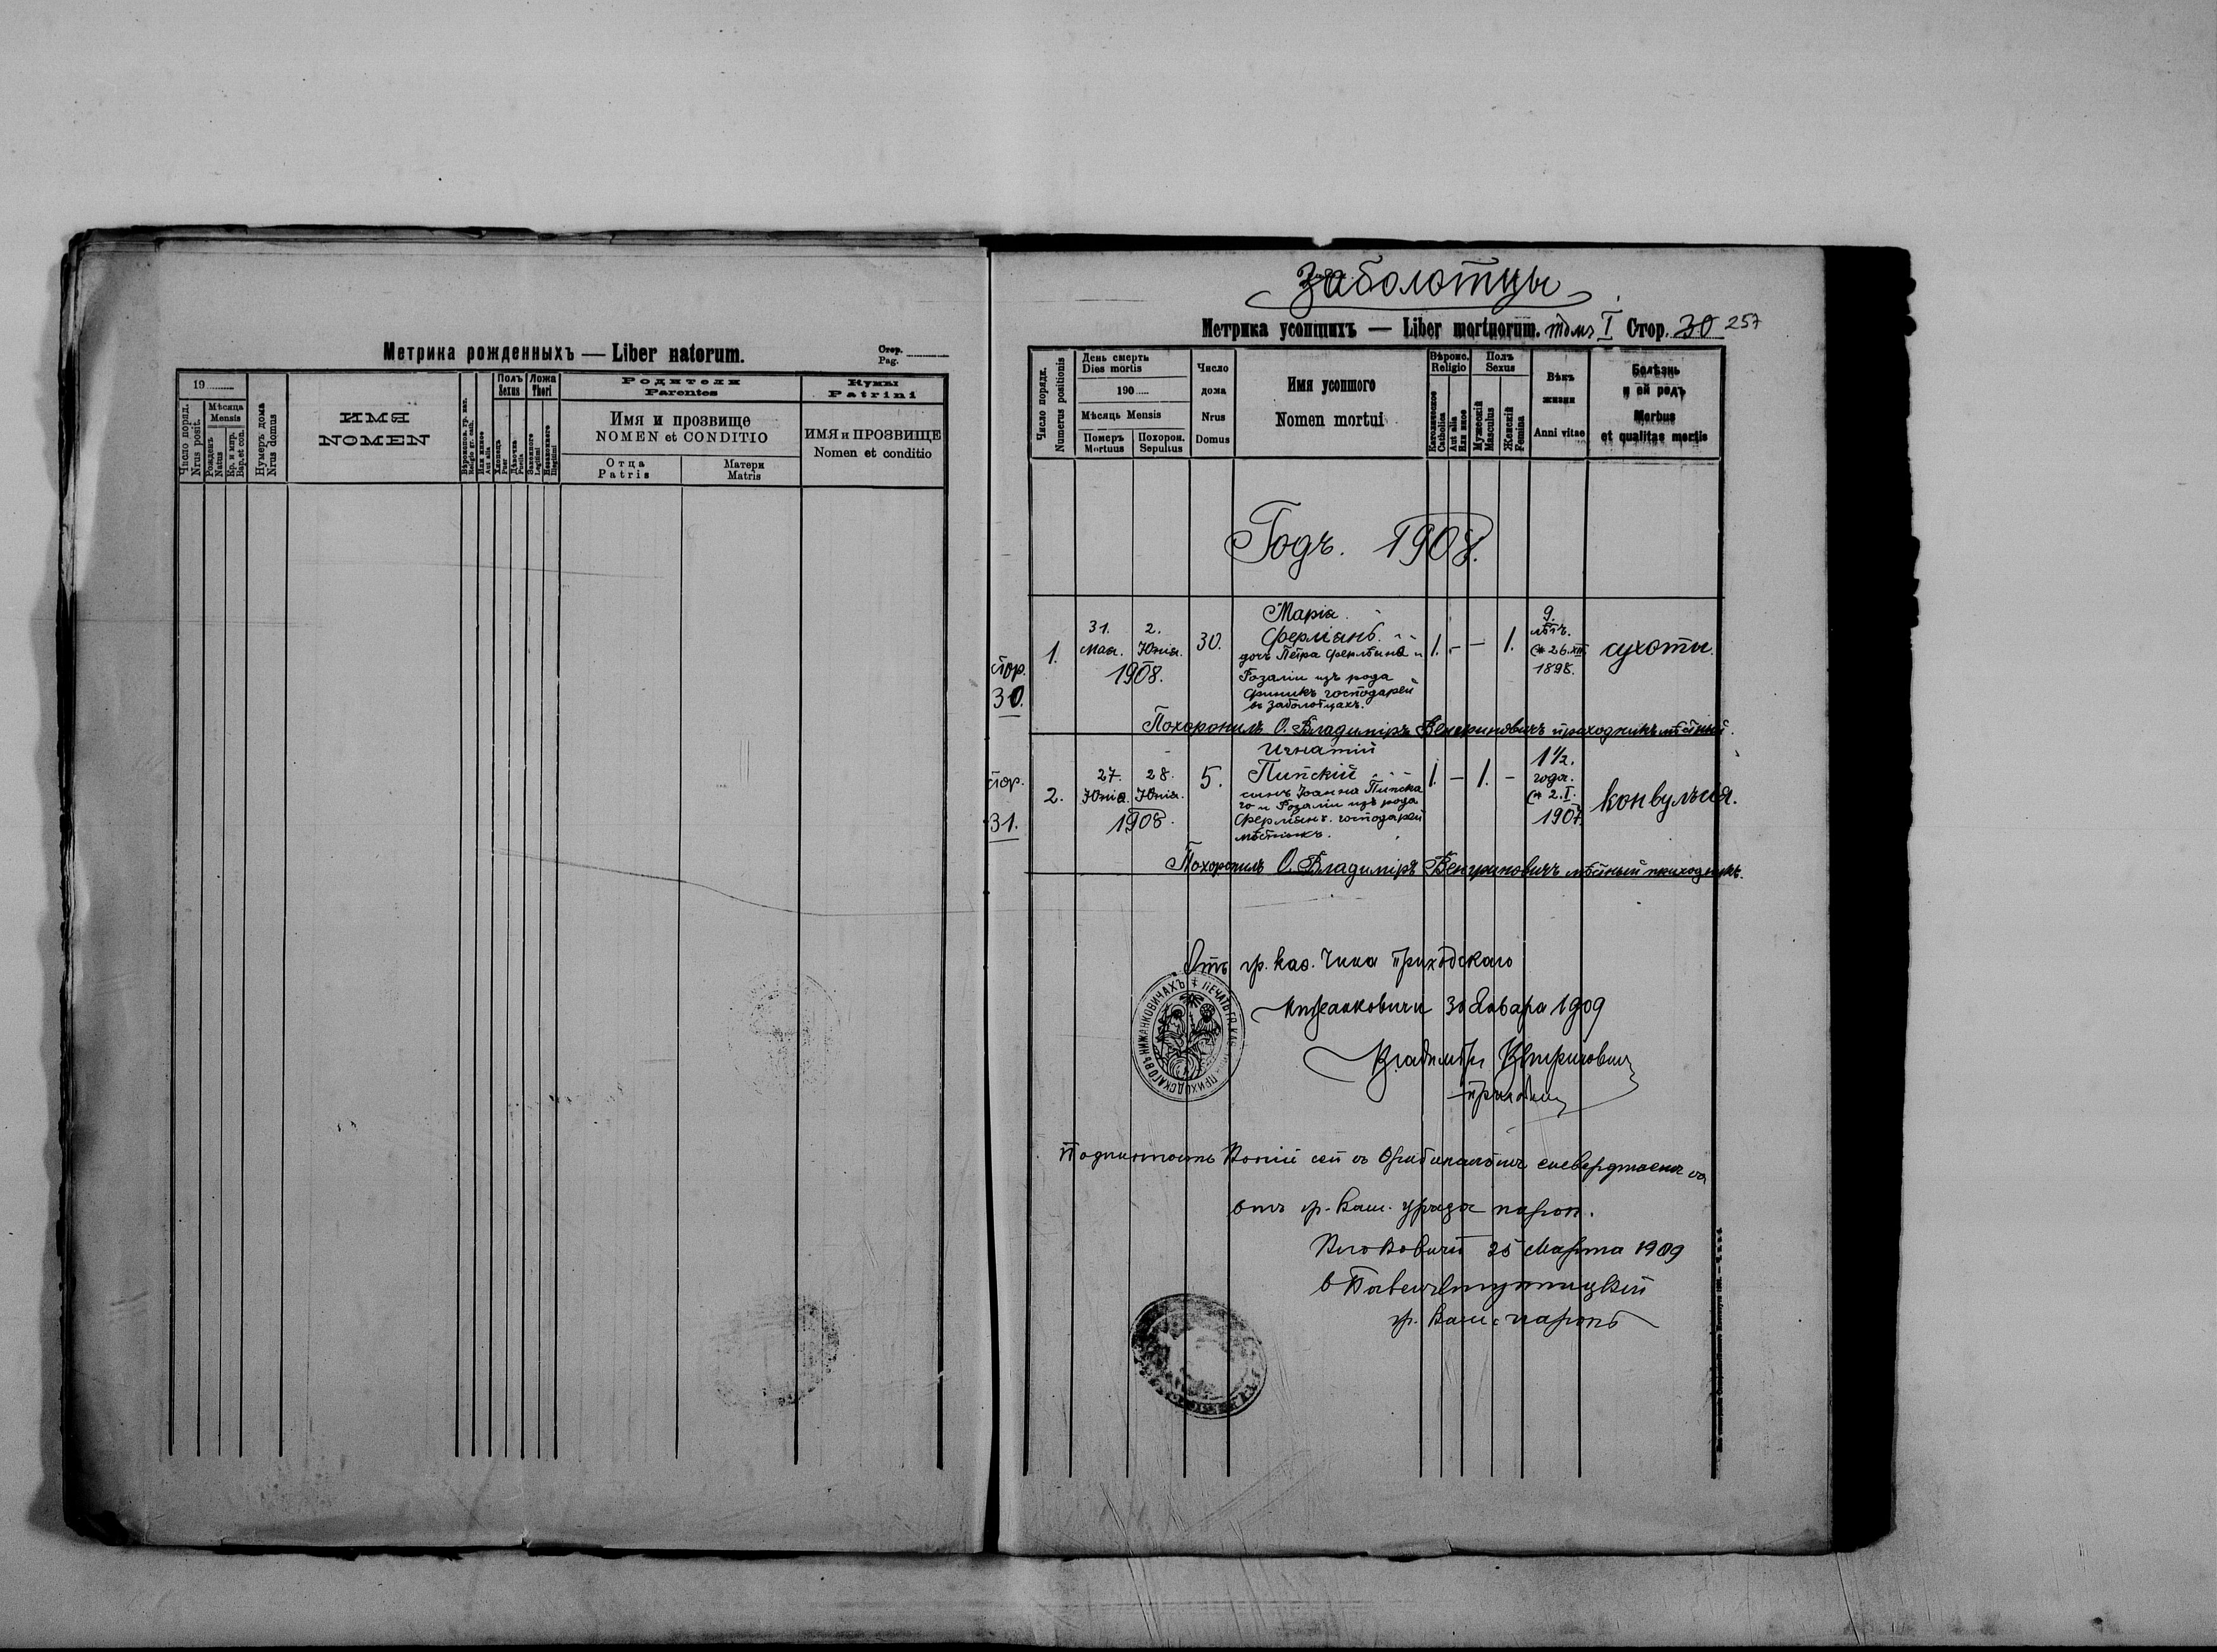 Метрика рожденныхъ — Liber natorum.
Стор.
Pag.
19
Число поряд.
Nrus posit.
Мѣсяца
Mensis
Рожденъ
Natus
Кр. и мир.
Bap. et con.
Нумеръ дома
Nrus domus
ИМЯ
NOMEN
Полъ
Sexus
Ложа
Thori
Родители
Parentes
Имя и прозвище
NOMEN et CONDITIO
Отца
Patris
Матери
Matris
Кумы
Patrini
ИМЯ и ПРОЗВИЩЕ
Nomen et conditio
Заболотцы
Метрика усопшихъ — Liber mortuorum. томъ I Стор. 30 257
Число порядк.
Numerus positionis
День смерть
Dies mortis
190
Мѣсяць Mensis
Померъ
Mortuus
Похорон.
Sepultus
Число
дома
Nrus
Domus
Имя усопшого
Nomen mortui
Вѣроис.
Religio
Католическое
Catholica
Или иное
Aut alia
Полъ
Sexus
Мужескій
Masculus
Женскій
Femina
Вѣкъ
жизни
Anni vitae
Болѣзнь
и ей родъ
Morbus
et qualitas mortis
Годъ. 1908.
стор.
30.
1.
31. Мая.
2. Юнія.
1908.
30.
Марія
Ферліанъ.
дочь Петра Ферліана и
Розаліи изъ рода
Финикъ господарей
въ Заболотцахъ.
1. - - 1.
9.
лѣтъ.
(* 26.XII
1898.
сухоты.
Похоронилъ О. Владиміръ Венгриновичъ приходникъ мѣстный.
стор.
31.
2.
27. Юнія.
28. Юнія.
1908.
5.
Игнатій
Пипскій
сынъ Іоанна Пипска
го и Розаліи изъ рода
Ферліанъ. господарей
мѣстныхъ.
1. - 1. -
1½.
года.
(* 2.I.
1907.
конвульсія.
Похоронилъ О. Владиміръ Венгриновичъ мѣстный приходникъ.
Отъ гр. каѳ. Чина приходского
Нижанковичи 30 Января 1909
Владиміръ Венгриновичъ
приходникъ
сей съ
отъ гр. кат. уряда парох.
25 Марта 1909
гр. кат. парохъ